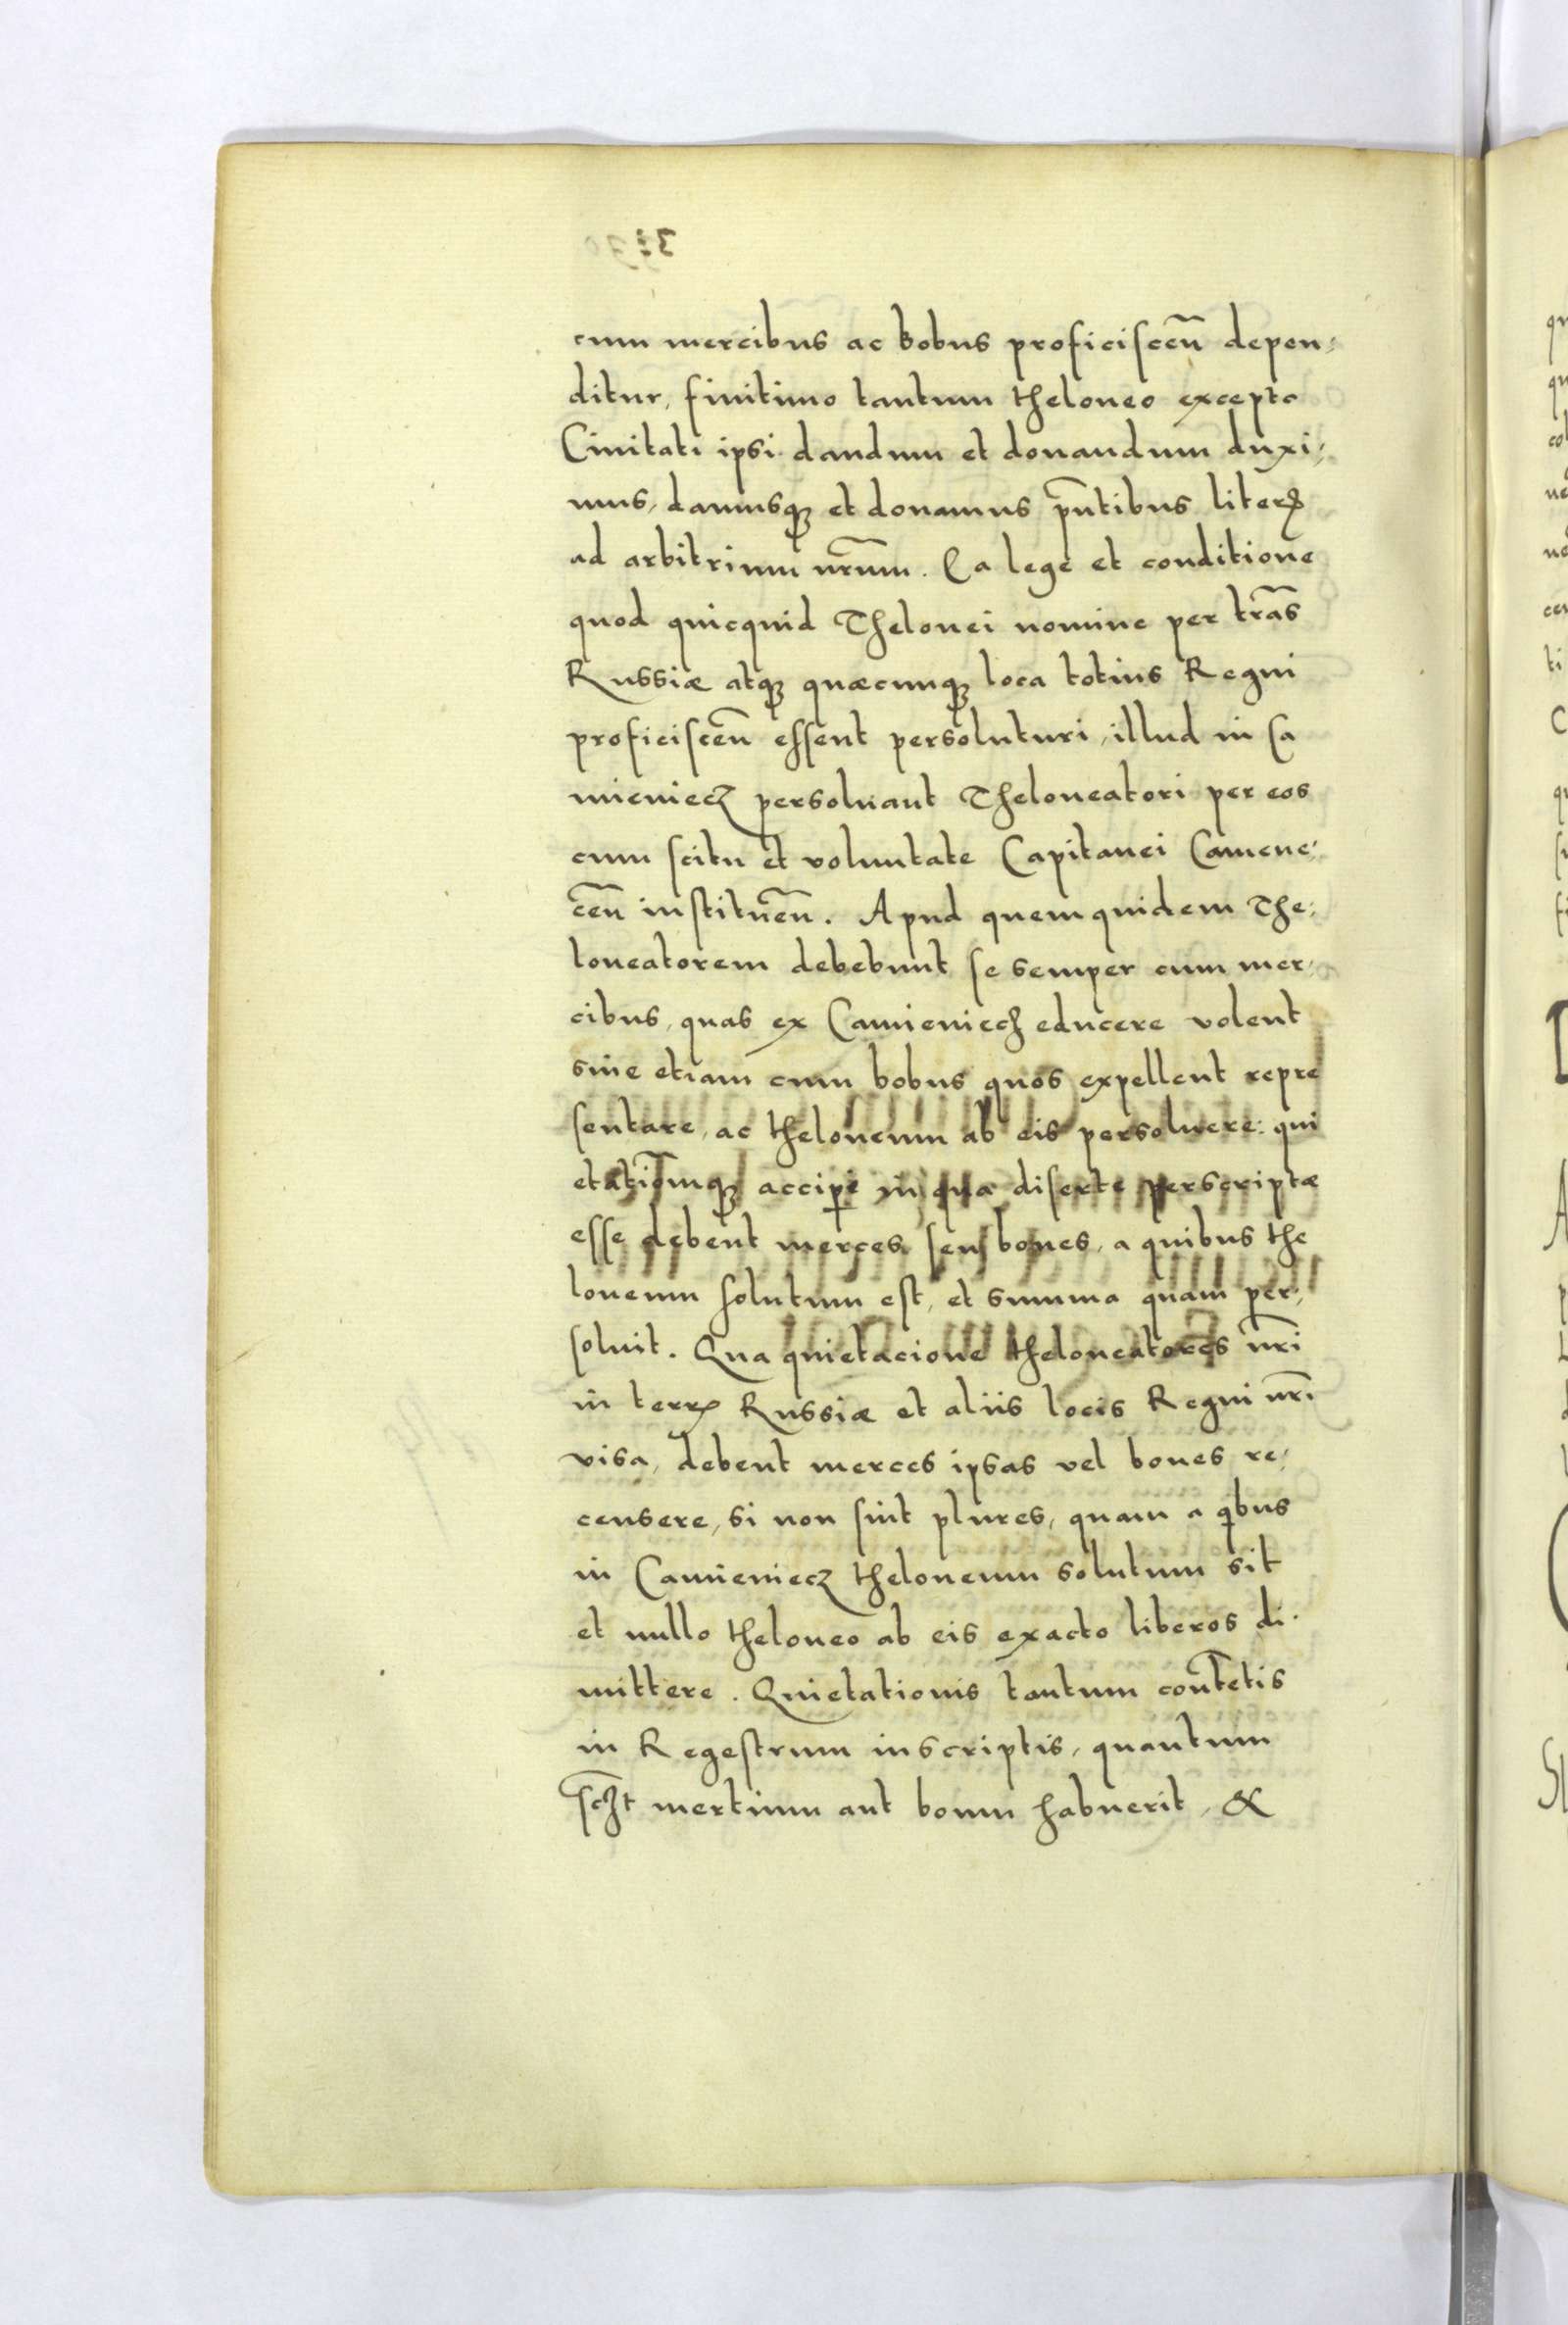 cum mercibus ac bobus proficiscen̄ depen:
ditur, finitimo tantum theloneo excepto
Ciuitati ipsi dandum et donandum duxi:
mus, damusqꝫ et donamus pn̄tibus literꝭ
ad arbitrium nr̄um. Ea lege et conditione
quod quicquid Thelonei nomine per tr̄as
Russiæ atqꝫ quæcunqꝫ loca totius Regni
proficiscen̄ essent persoluturi, illud in Ca
mieniecz persoluant Theloneatori per eos
cum scitu et voluntate Capitanei Camene:
cen̄ instituen̄. Apud quem quidem The:
loneatorem debebunt se semper cum mer:
cibus, quas ex Camieniech educere volent
siue etiam cum bobus quos expellent repre
sentare, ac theloneum ab eis persoluere: qui
etatiōmqꝫ acciꝑe in qua diserte perscriptæ
esse debent merces, seu boues, a quibus the
loneum solutum est, et summa quam per:
soluit. Qua quietacione theloneatores nr̄i
in terrꝭ Russiæ et aliis locis Regni nr̄i
visa, debent merces ipsas vel boues re:
censere, si non sint plures, quam a qibus
in Camieniecz theloneum solutum sit
et nullo theloneo ab eis exacto liberos di:
mittere. Quietationis tantum conten̄tis
in Regestrum inscriptis, quantum
sczt mertium aut boum habuerit, &